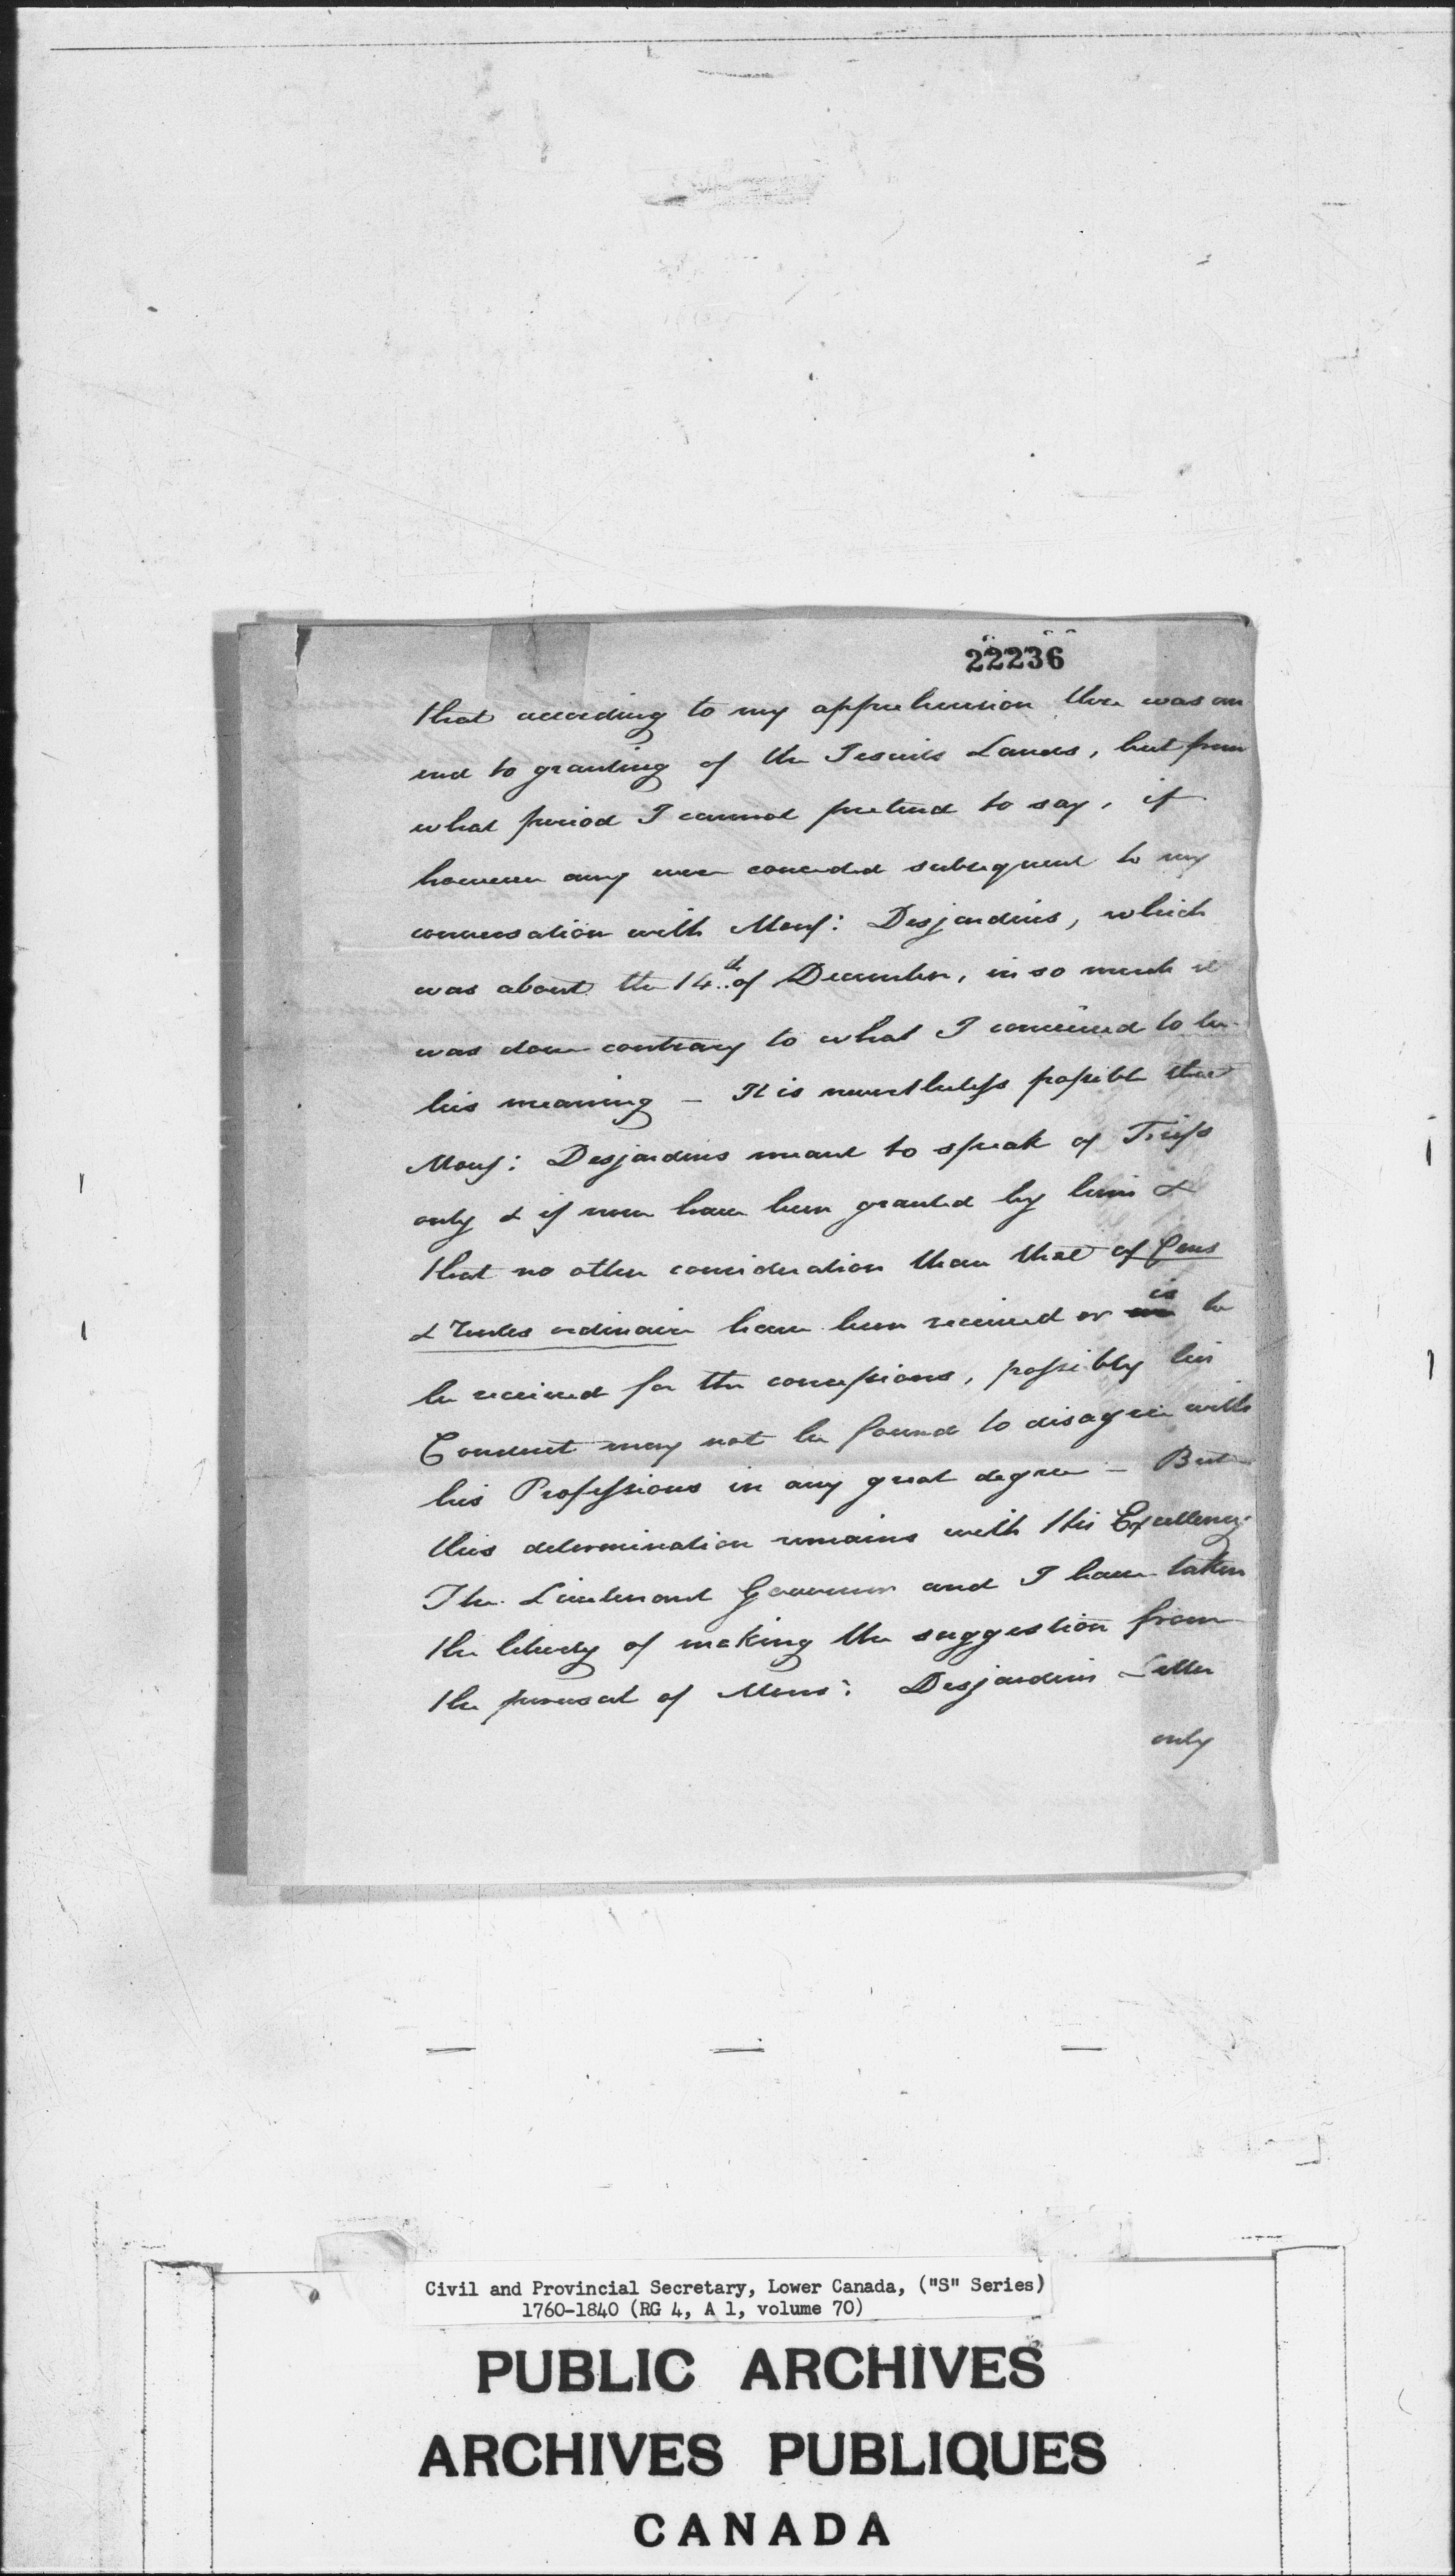 22236
that according to my apprehension there was an
end to granting of the Jesuits Lands, but from
what period I cannot pretend to say, if
however any were conceded subsequent to my
conversation with Mons: Desjardins, which
was about the 14th of December, in so much it
was done contrary to what I conceived to be
his meaning – It is nevertheless possible that
Mons: Desjardins meant to speak of
only & if none have been granted by him &
that no other consideration than that of Cens
& Rentes ordinaire have been received or is to
be received for the concessions, possibly his
Conduct may not be found to disagree with
his Professions in any great degree – But
this determination remains with His Excellency
The Lieutenant Governor and I have taken
the liberty of making the suggestion from
the perusal of Mons: Desjardins Letter
only
Civil and Provincial Secretary, Lower Canada, ("S" Series)
1760-1840 (RG 4, A 1, volume 70)
PUBLIC ARCHIVES
ARCHIVES PUBLIQUES
CANADA